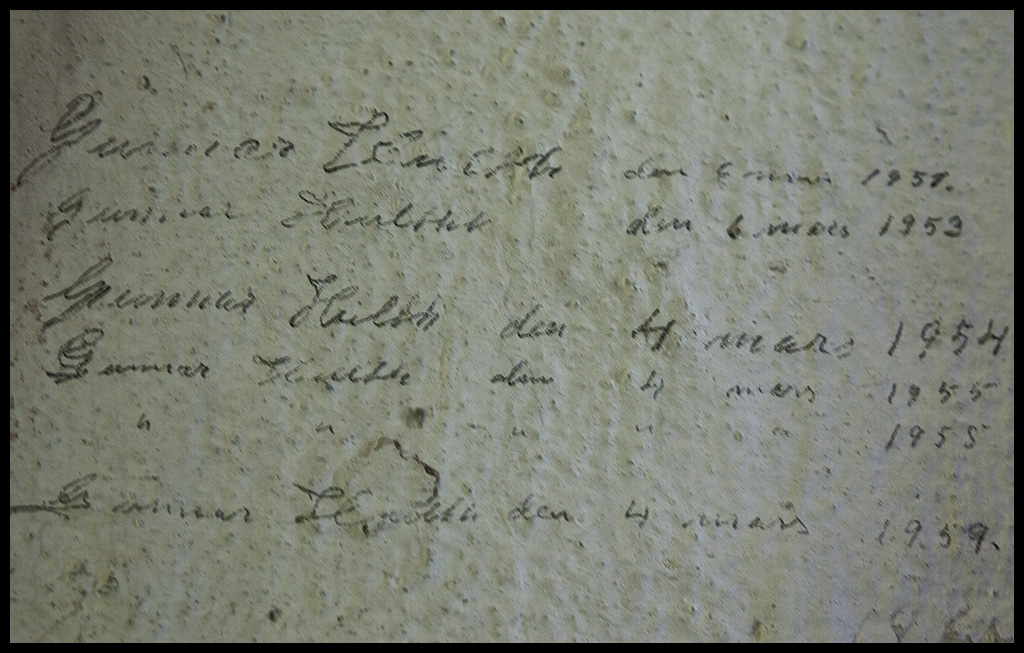 Gunnar den 6 mars 1951.
Gunnar Hultth den 6 mars 1953
Gunnar Hultth den 4 mars 1954
Gunnar Hultth den 4 mars 1955
" " " " " 1955
Gunnar den 4 mars 1959.